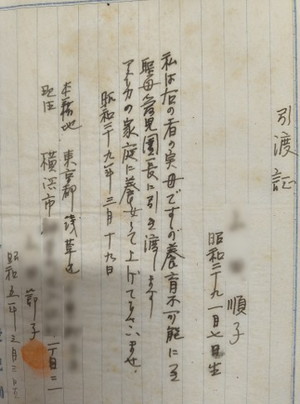 引渡証
順子
昭和三十九年一月七日生
私は右の者の実母ですが養育不可能に至
聖母愛児園長に引き渡します
アメリカの家庭に養女として上げて下さいませ.
昭和三十九年三月十九日
本籍地 東京都浅草区
現住 横浜市 丁目三二
節子
昭和五年五月三十